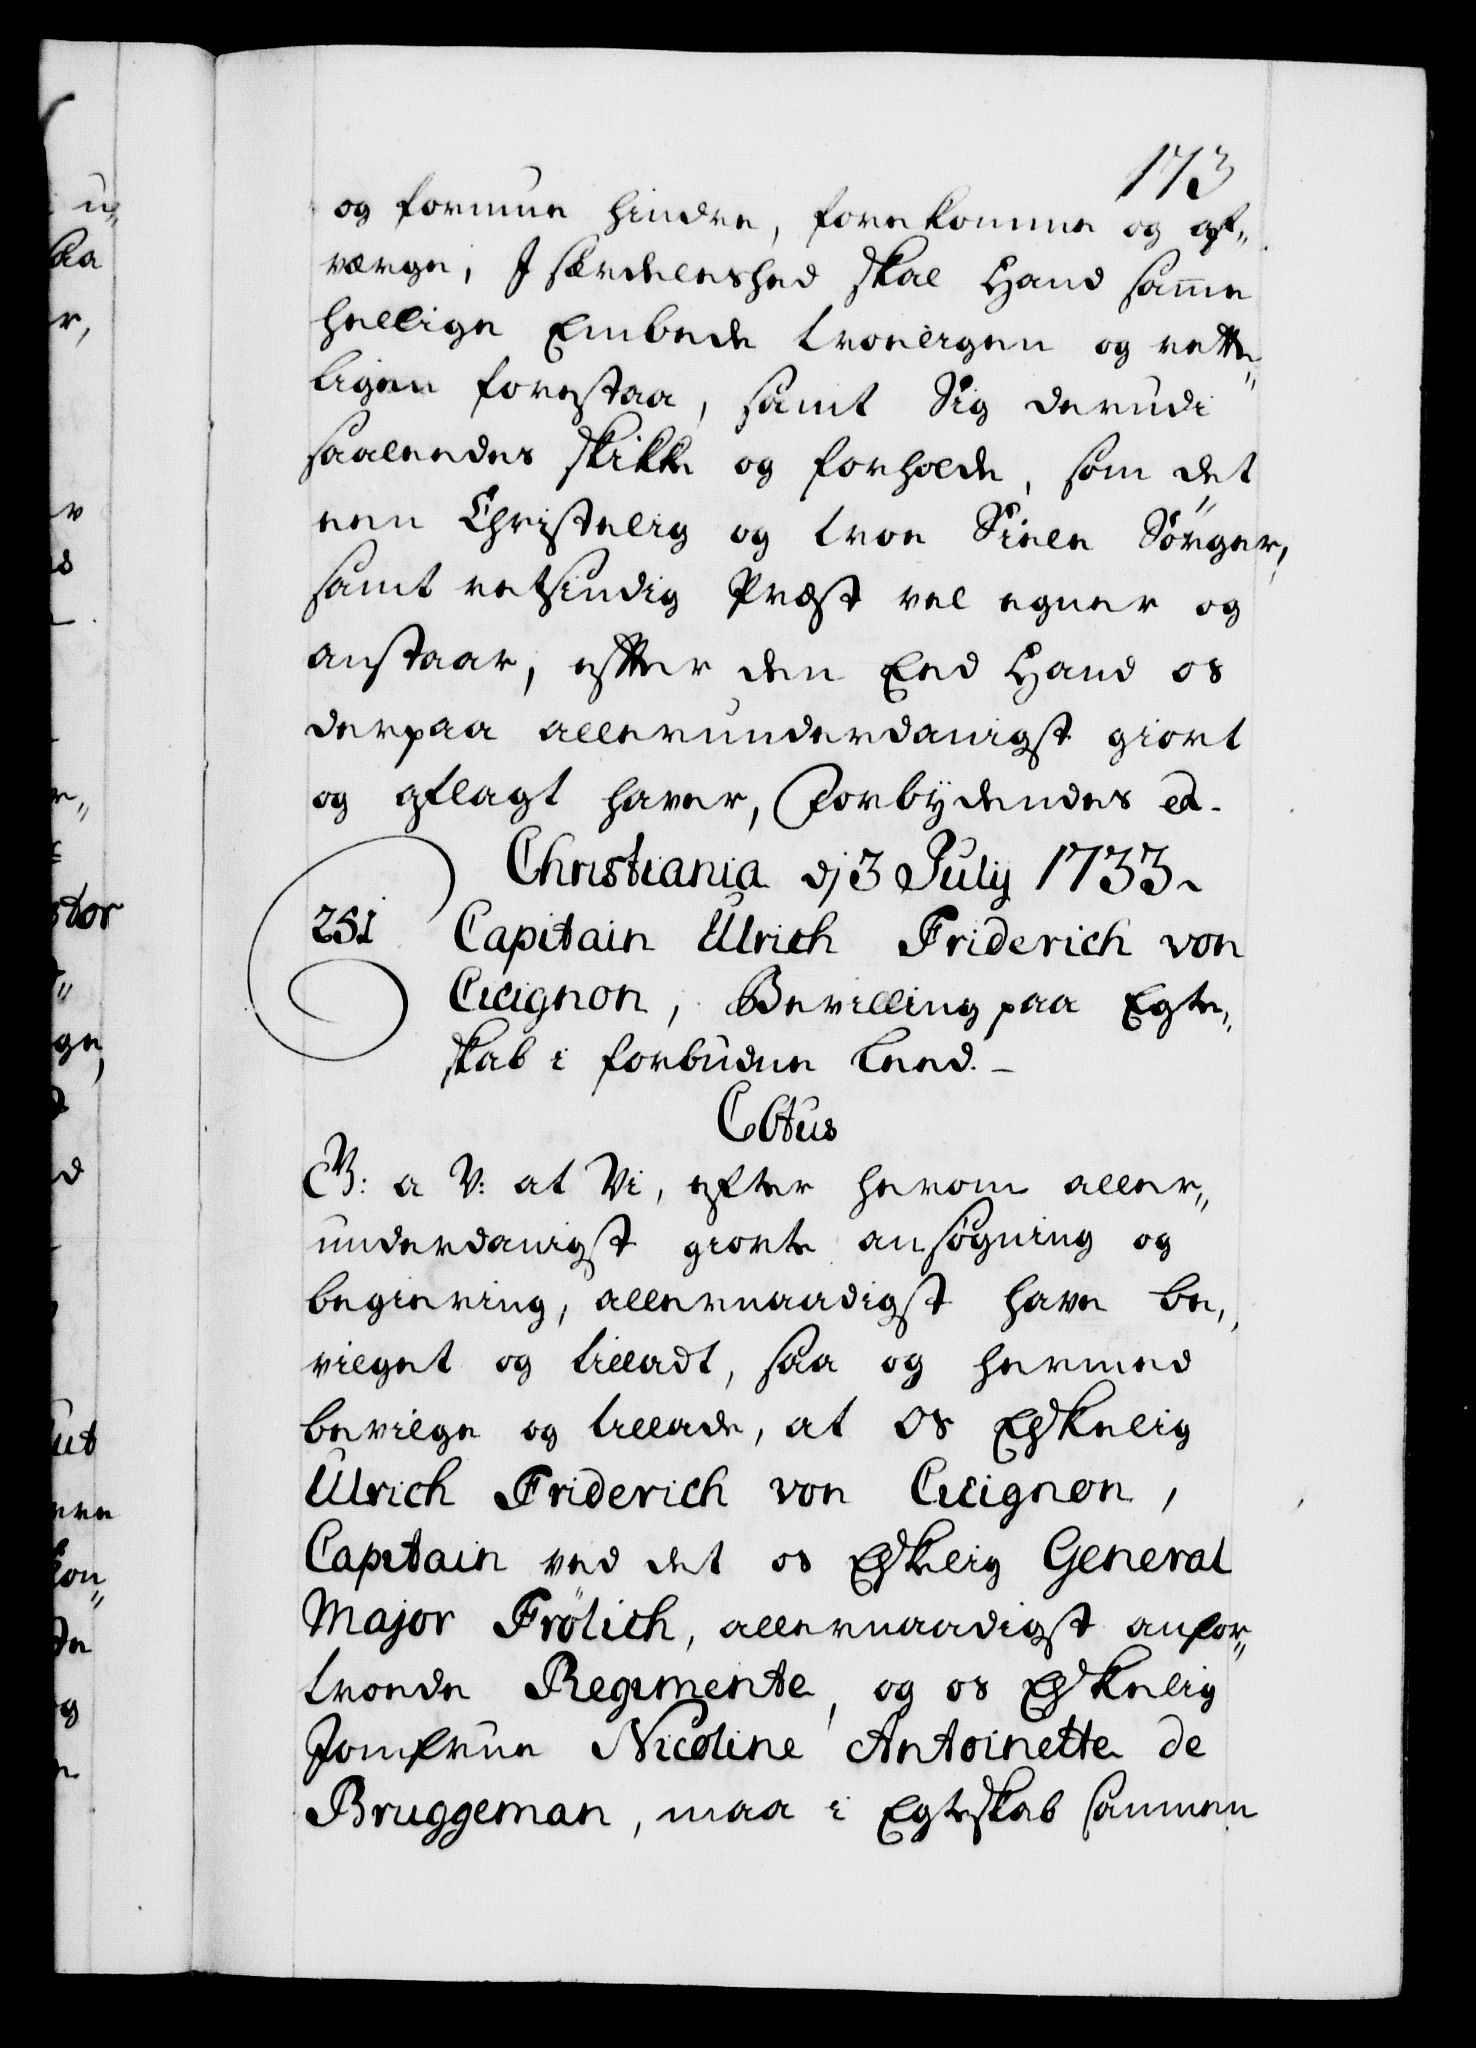 173
og formue hindre, forekomme og af„
værge, J særdeleshed skal Hand samme
hellige Embede troeligen og rette„
ligen forestaa, samt Sig derudi
saaledes skikke og forholde, som det
een Christelig og troe Siæle Sörger,
samt retsindig Præst vel egner og
anstaar, efter den Eed Hand os
derpaa allerunderdanigst giort
og aflagt haver, Forbydendes et.
Christiania dj 3 July 1733.
251
Capitain Ulrich Friderich von
Cicignon, Bevilling paa Egte„
skab i forbudne Leed.
C6tus
G: a V: at Vi, efter herom aller„
underdanigst giorte ansøgning og
begiering, allernaadigst have be„
vilget og tilladt, saa og hermed
bevilge og tillade, at Os Elskelig
Ulrich Friderich von Cicignon,
Capitain ved det os Elskelig General
Major Frölich, allernaadigst anfor„
troede Regimente, og os Elskelig
Jomfrue Nicoline Antoinette de
Bruggeman, maa i Egteskab sammen